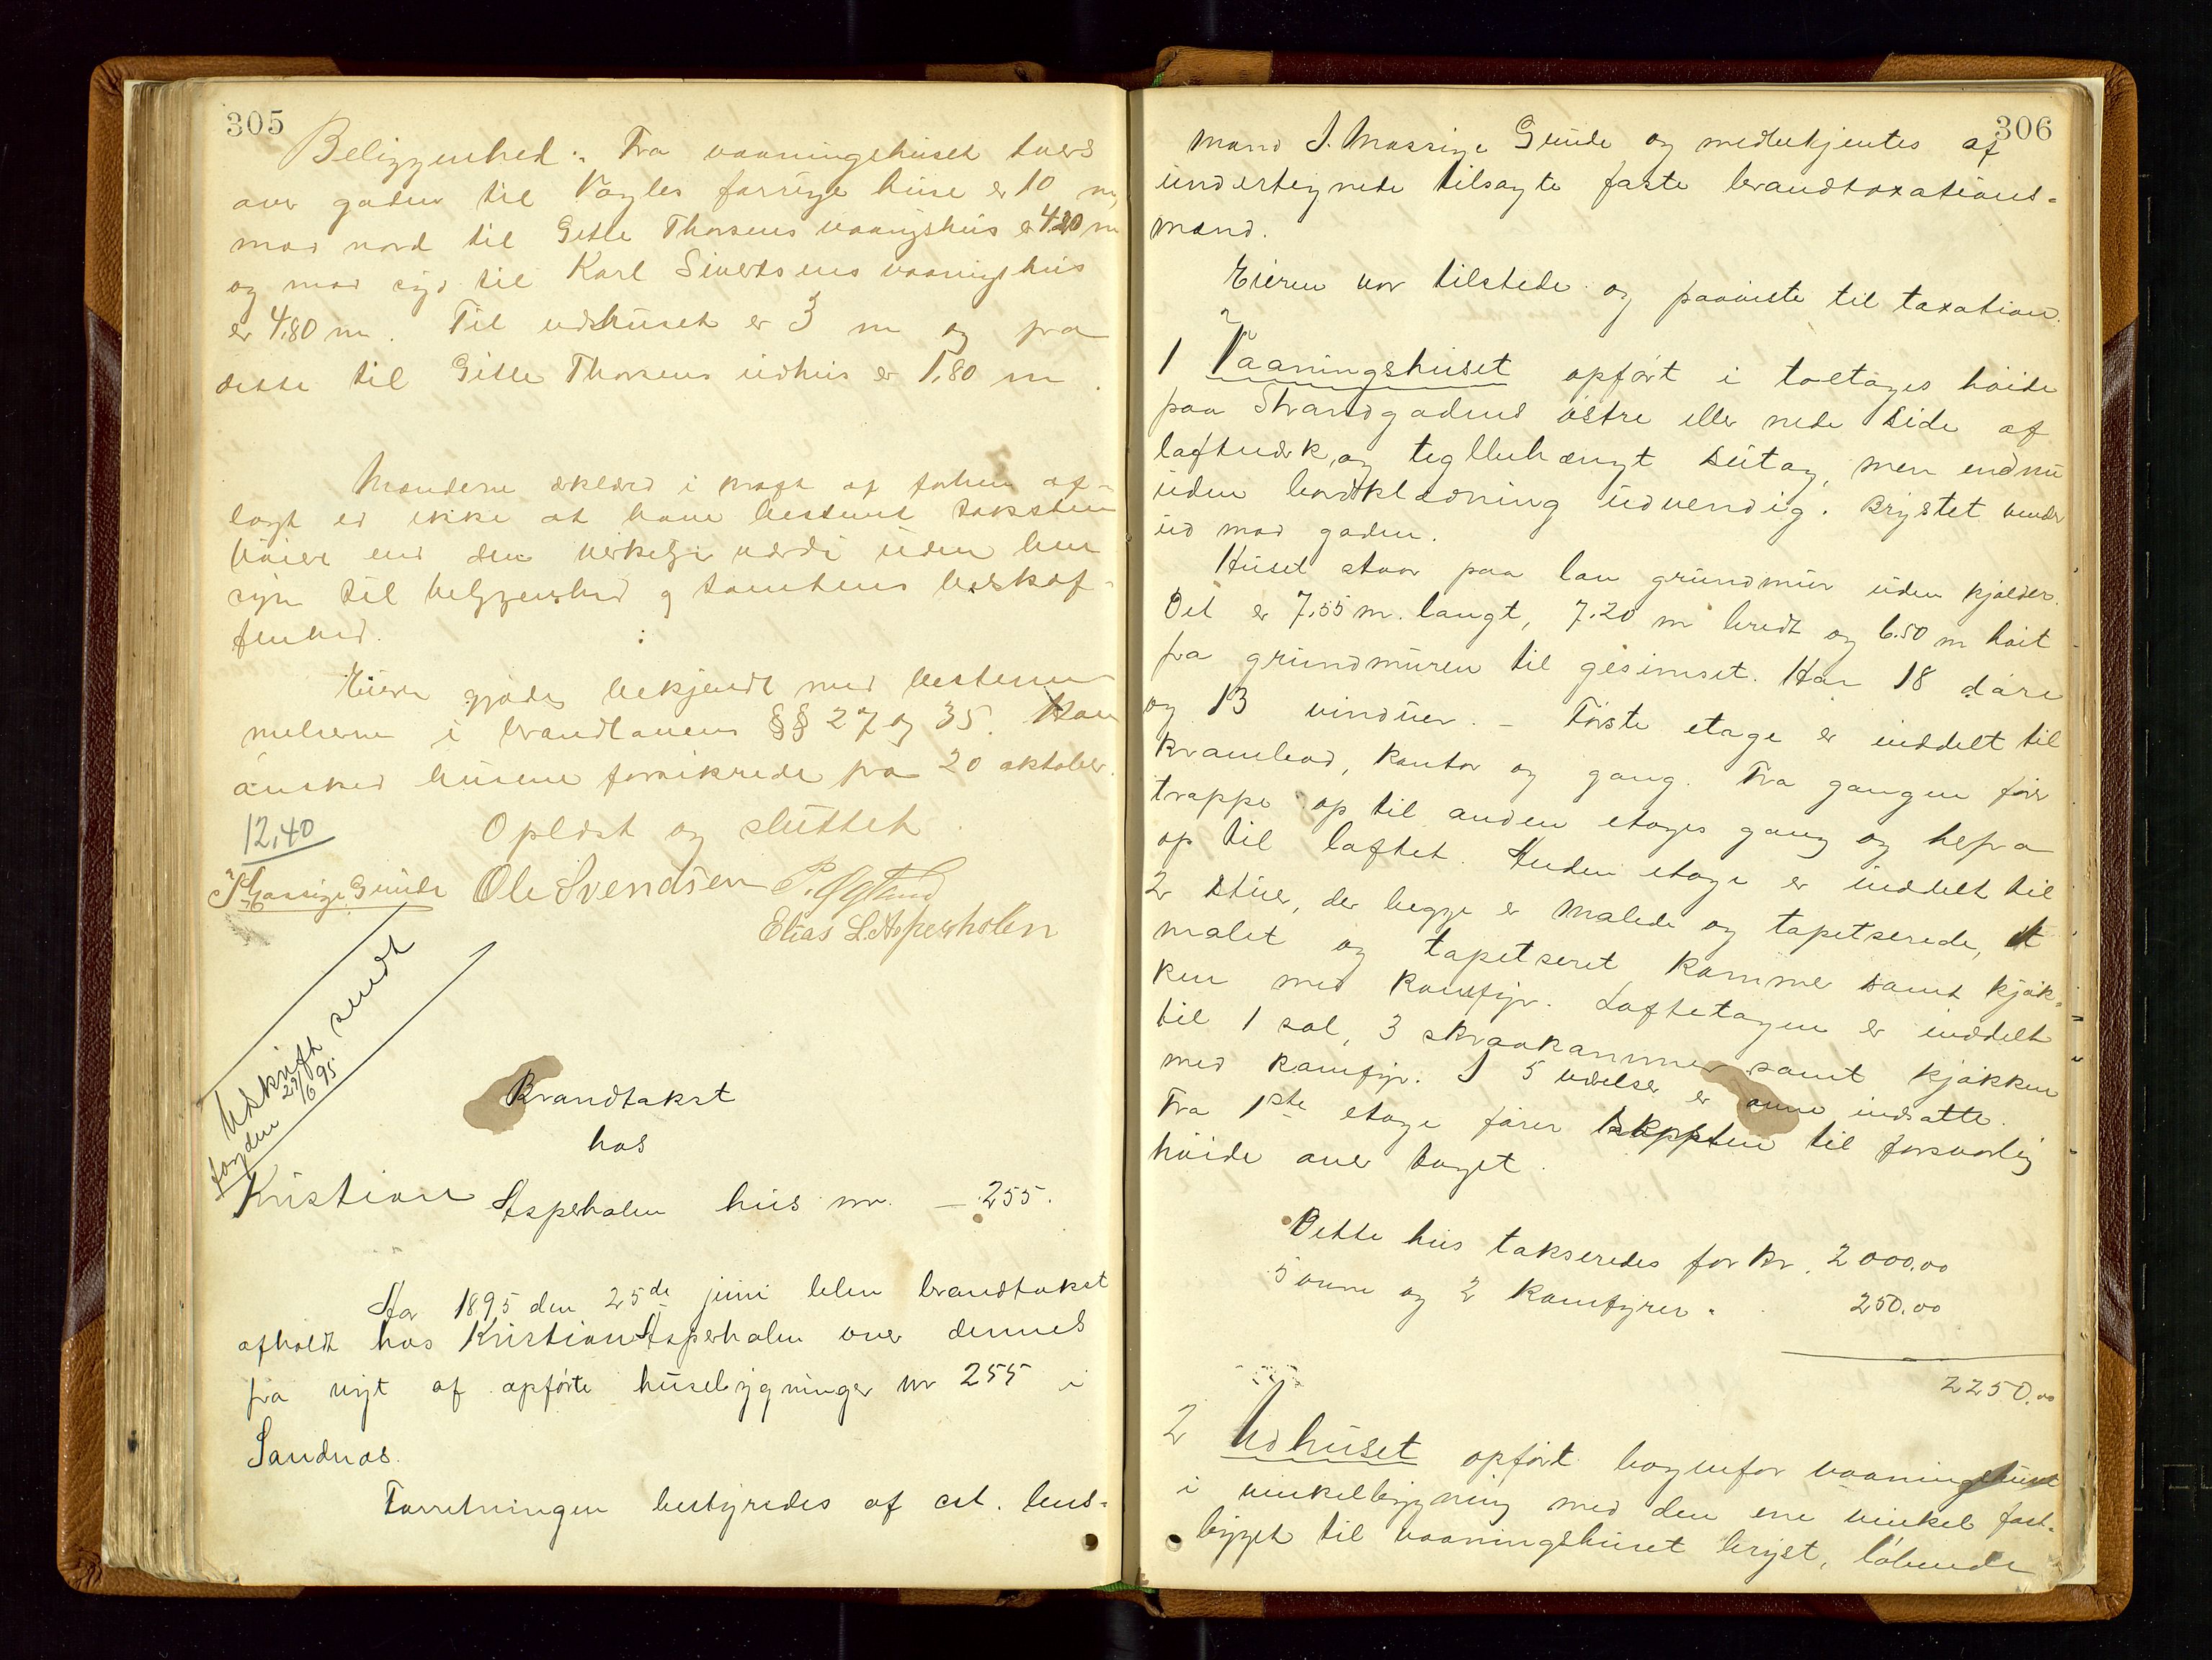 305
Beliggenhed: Fra vaaningshuset tvers
over gaden til Vagles forrige huse er 10 m,
mod nord til Gitle Thorsens vaanigshus er 4.20 m
og mod syd til Karl Sivertsens vaanigshus
er 4,80 m. Til udshuset er 3 m og fra
dette til Gitle Thorsens udhus er 1,80 m.
Mænderne erklærd i kraft af forhen af-
lagt ed ikke at have bestemt taksten
höiere end den virkelige værdi uden hen
syn til beliggenhed og tomtens beskaf-
fenhed.
Eieren gjödes bekjendt med bestem
melserne i brandlovens §§ 27 og 35. Han
önsked husene forsikrede fra 20 oktober.
12,40 Oplæst og sluttet.
J. Massige Gunde Ole Svendsen P. Ogland
Elias L. Aspeholen
Udskrift sendt
29/6 95
fogden
Brandtakst
hos
Kristian Aspeholen hus nr. — 255.
Aar 1895 den 25de juni blev brandtakst
afholdt hos Kristian Aspeholen over dennes
fra nyt af opförte husebygninger nr 255 i
Sandnæs.
Forretningen bestyredes af cst. lens-
306
mand J. Massige Gunde og medbekjentes af
undertegnede tilsagte faste brandtaxations-
mænd.
Eieren var tilstede og paaviste til taxation.
1 Vaaningshuset opfört i toetages höide
paa Strandgadens östre eller nede side af
laftverk og teglbehængt sutag, men endnu
uden bordklædning udvendig. Brystet vender
ud mod gaden.
Huset staar paa lav grundmur uden kjelder.
Det er 7.55 m. langt, 7.20 m bredt og 6.50 m höit
fra grundmuren til gesimset. Har 18 döre
og 13 vinduer. – Förste etage er inddelt til
krambod, kontor og gang. Fra gangen förer
trappe op til anden etages gang og hefra
op til loftet. Anden etage er inddelt til
2 stuer, der begge er malede og tapetserede, et
malet og tapetseret kammer samt kjök-
ken med komfyr. Loftetagen er inddelt
til 1 sal, 3 skraakammer samt kjökken
med komfyr. I 5 værelser er ovne indsatte.
Fra 1ste etage förer til forsvarlig
höide over taget.
Dette hus takseredes for kr. 2000.00
5 ovne og 2 komfyrer " 250.00
2250.00
2 Udhuset opfört bagenfor vaaningshuset
i vinkelbygning med den ene vinkel fast-
bygget til vaaningshuset bryst, löbende